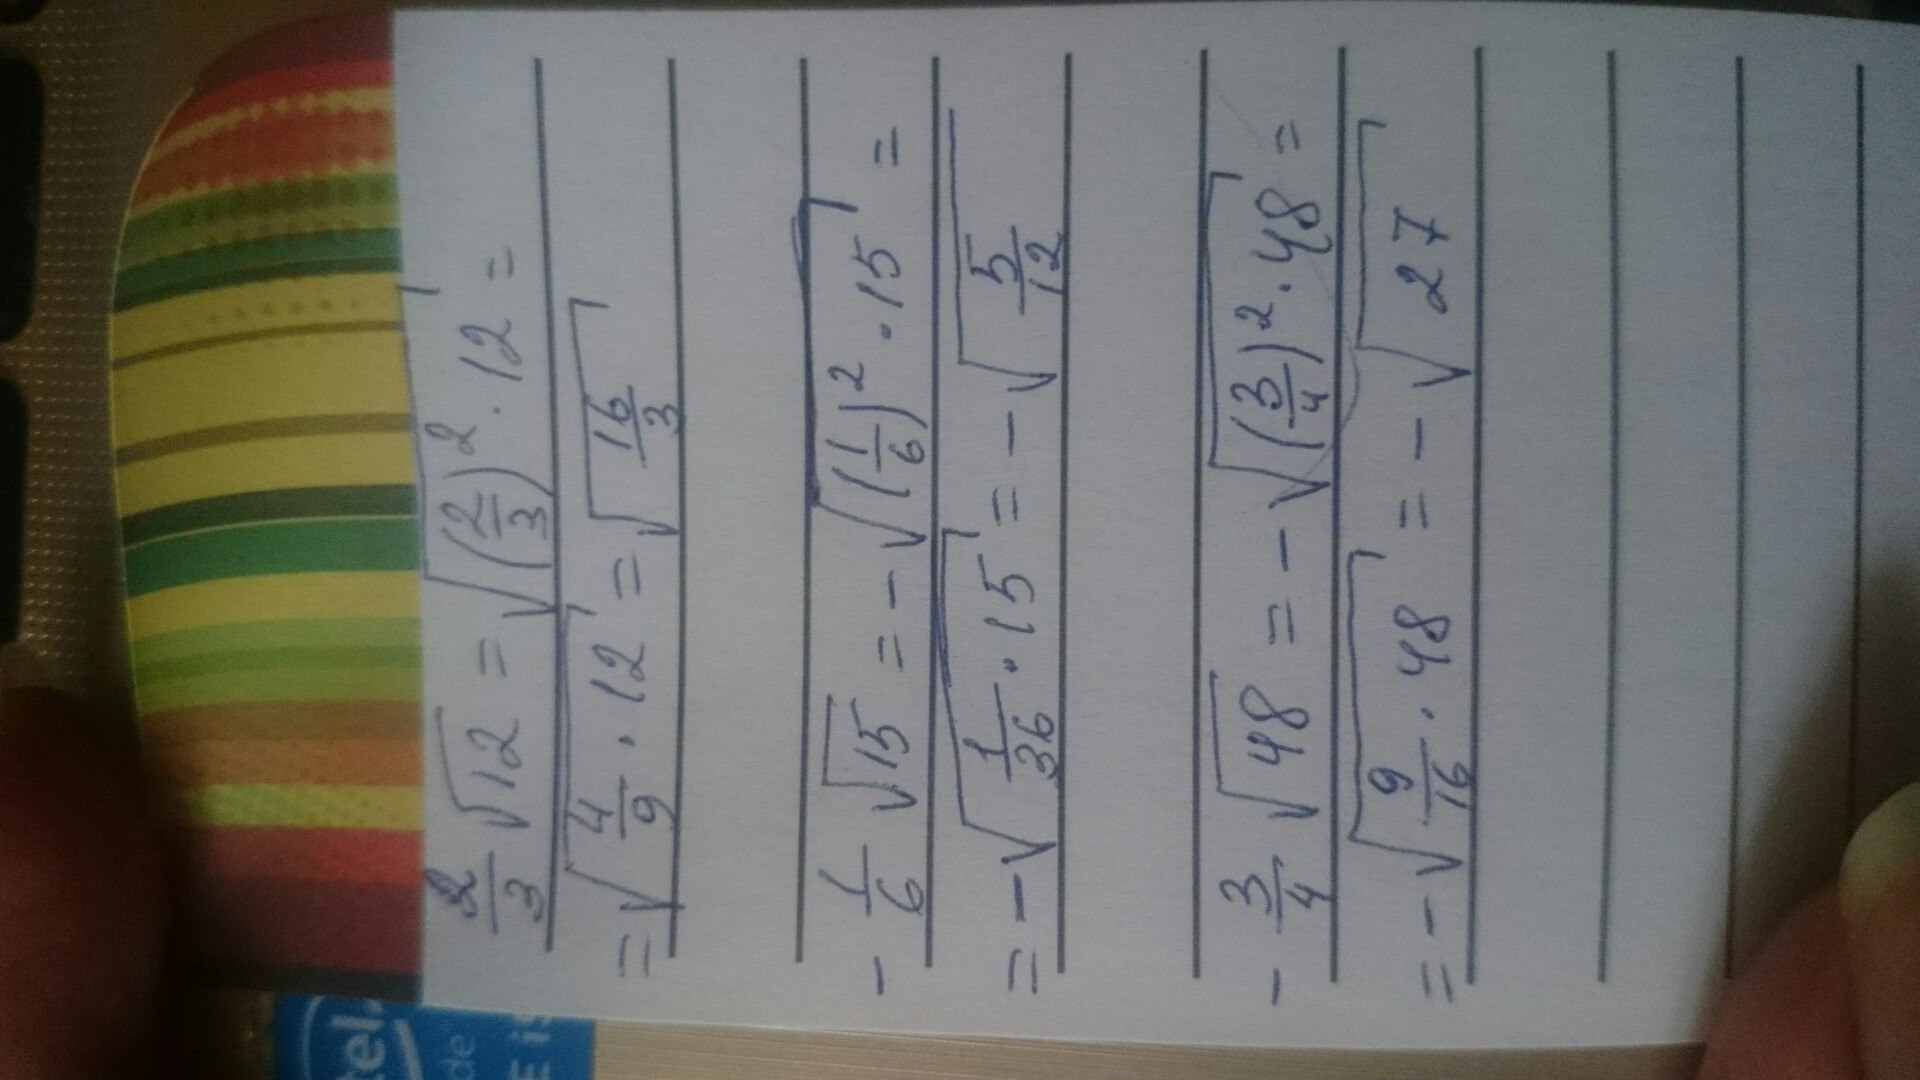 2/3 √12 = √((2/3)² · 12) =
= √(4/9 · 12) = √(16/3)
- 1/6 √15 = - √((1/6)² · 15) =
= - √(1/36 · 15) = - √(5/12)
- 3/4 √48 = - √((3/4)² · 48) =
= - √(9/16 · 48) = - √27